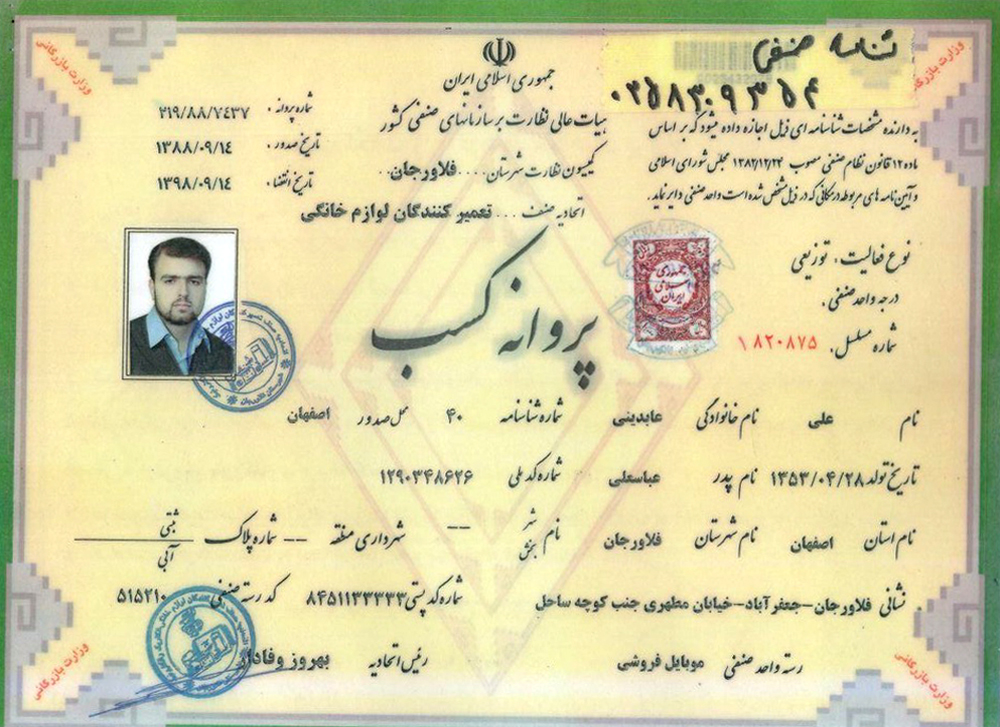 جمهوری اسلامی ایران
هیات عالی نظارت بر سازمانهای صنفی کشور
کمیسیون نظارت شهرستان.....فلاورجان...
اتحادیه صنف ... تعمیر کنندگان لوازم خانگی
شناسه صنفی
۰۴۵۸۳۰۹۳۵۴
به دارنده مشخصات شناسنامه ای ذیل اجازه داده میشود که بر اساس
ماده ۱۲ قانون نظام صنفی مصوب ۱۳۸۲/۱۲/۲۴ مجلس شورای اسلامی
و آیین نامه های مربوطه در مکانی که در ذیل مشخص شده است واحد صنفی دایر نماید.
شماره پروانه . ۲۱۹/۸۸/۷۴۳۷
تاریخ صدور . ۱۳۸۸/۰۹/۱۴
تاریخ انقضاء . ۱۳۹۸/۰۹/۱۴
نوع فعالیت . توزیعی
درجه واحد صنفی .
شماره مسلسل . ۱۸۲۰۸۷۵
جمهوری
اسلامی
ایران
پروانه کسب
نام علی نام خانوادگی عابدینی شماره شناسنامه ۴۰ محل صدور اصفهان
تاریخ تولد ۱۳۵۳/۰۴/۲۸ نام پدر عباسعلی شماره کد ملی ۱۲۹۰۳۴۸۶۲۶
نام استان اصفهان نام شهرستان فلاورجان نام شهر بخش -- شهرداری منطقه -- شماره پلاک ثبتی آبی
نشانی فلاورجان-جعفرآباد-خیابان مطهری جنب کوچه ساحل شماره کد پستی ۸۴۵۱۱۳۳۳۳۳ کد رسته صنفی ۵۱۵۲۱۰
رسته واحد صنفی موبایل فروشی رئیس اتحادیه بهروز وفادار
وزارت بازرگانی
وزارت بازرگانی
وزارت بازرگانی
وزارت بازرگانی